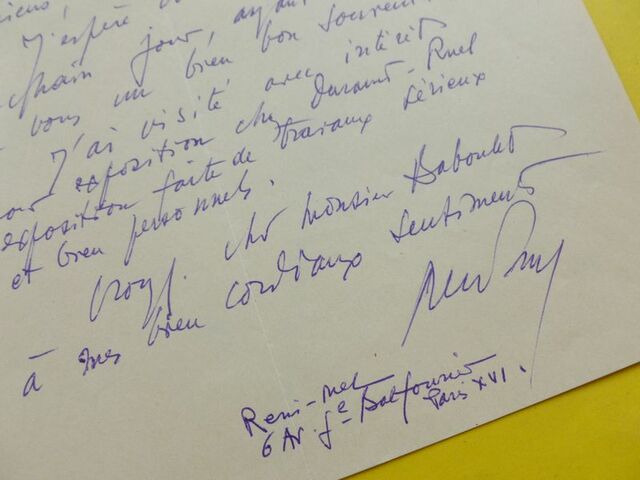 J'espère
chain jour, ayant
vous un bien bon souvenir
J'ai visité avec intérêt
exposition chez Durand-Ruel
exposition faite de travaux sérieux
et bien personnels.
Croyez cher Monsieur Baboulet
à mes bien cordiaux sentiments
6 Av. Gé Balfourier
Paris XVI.